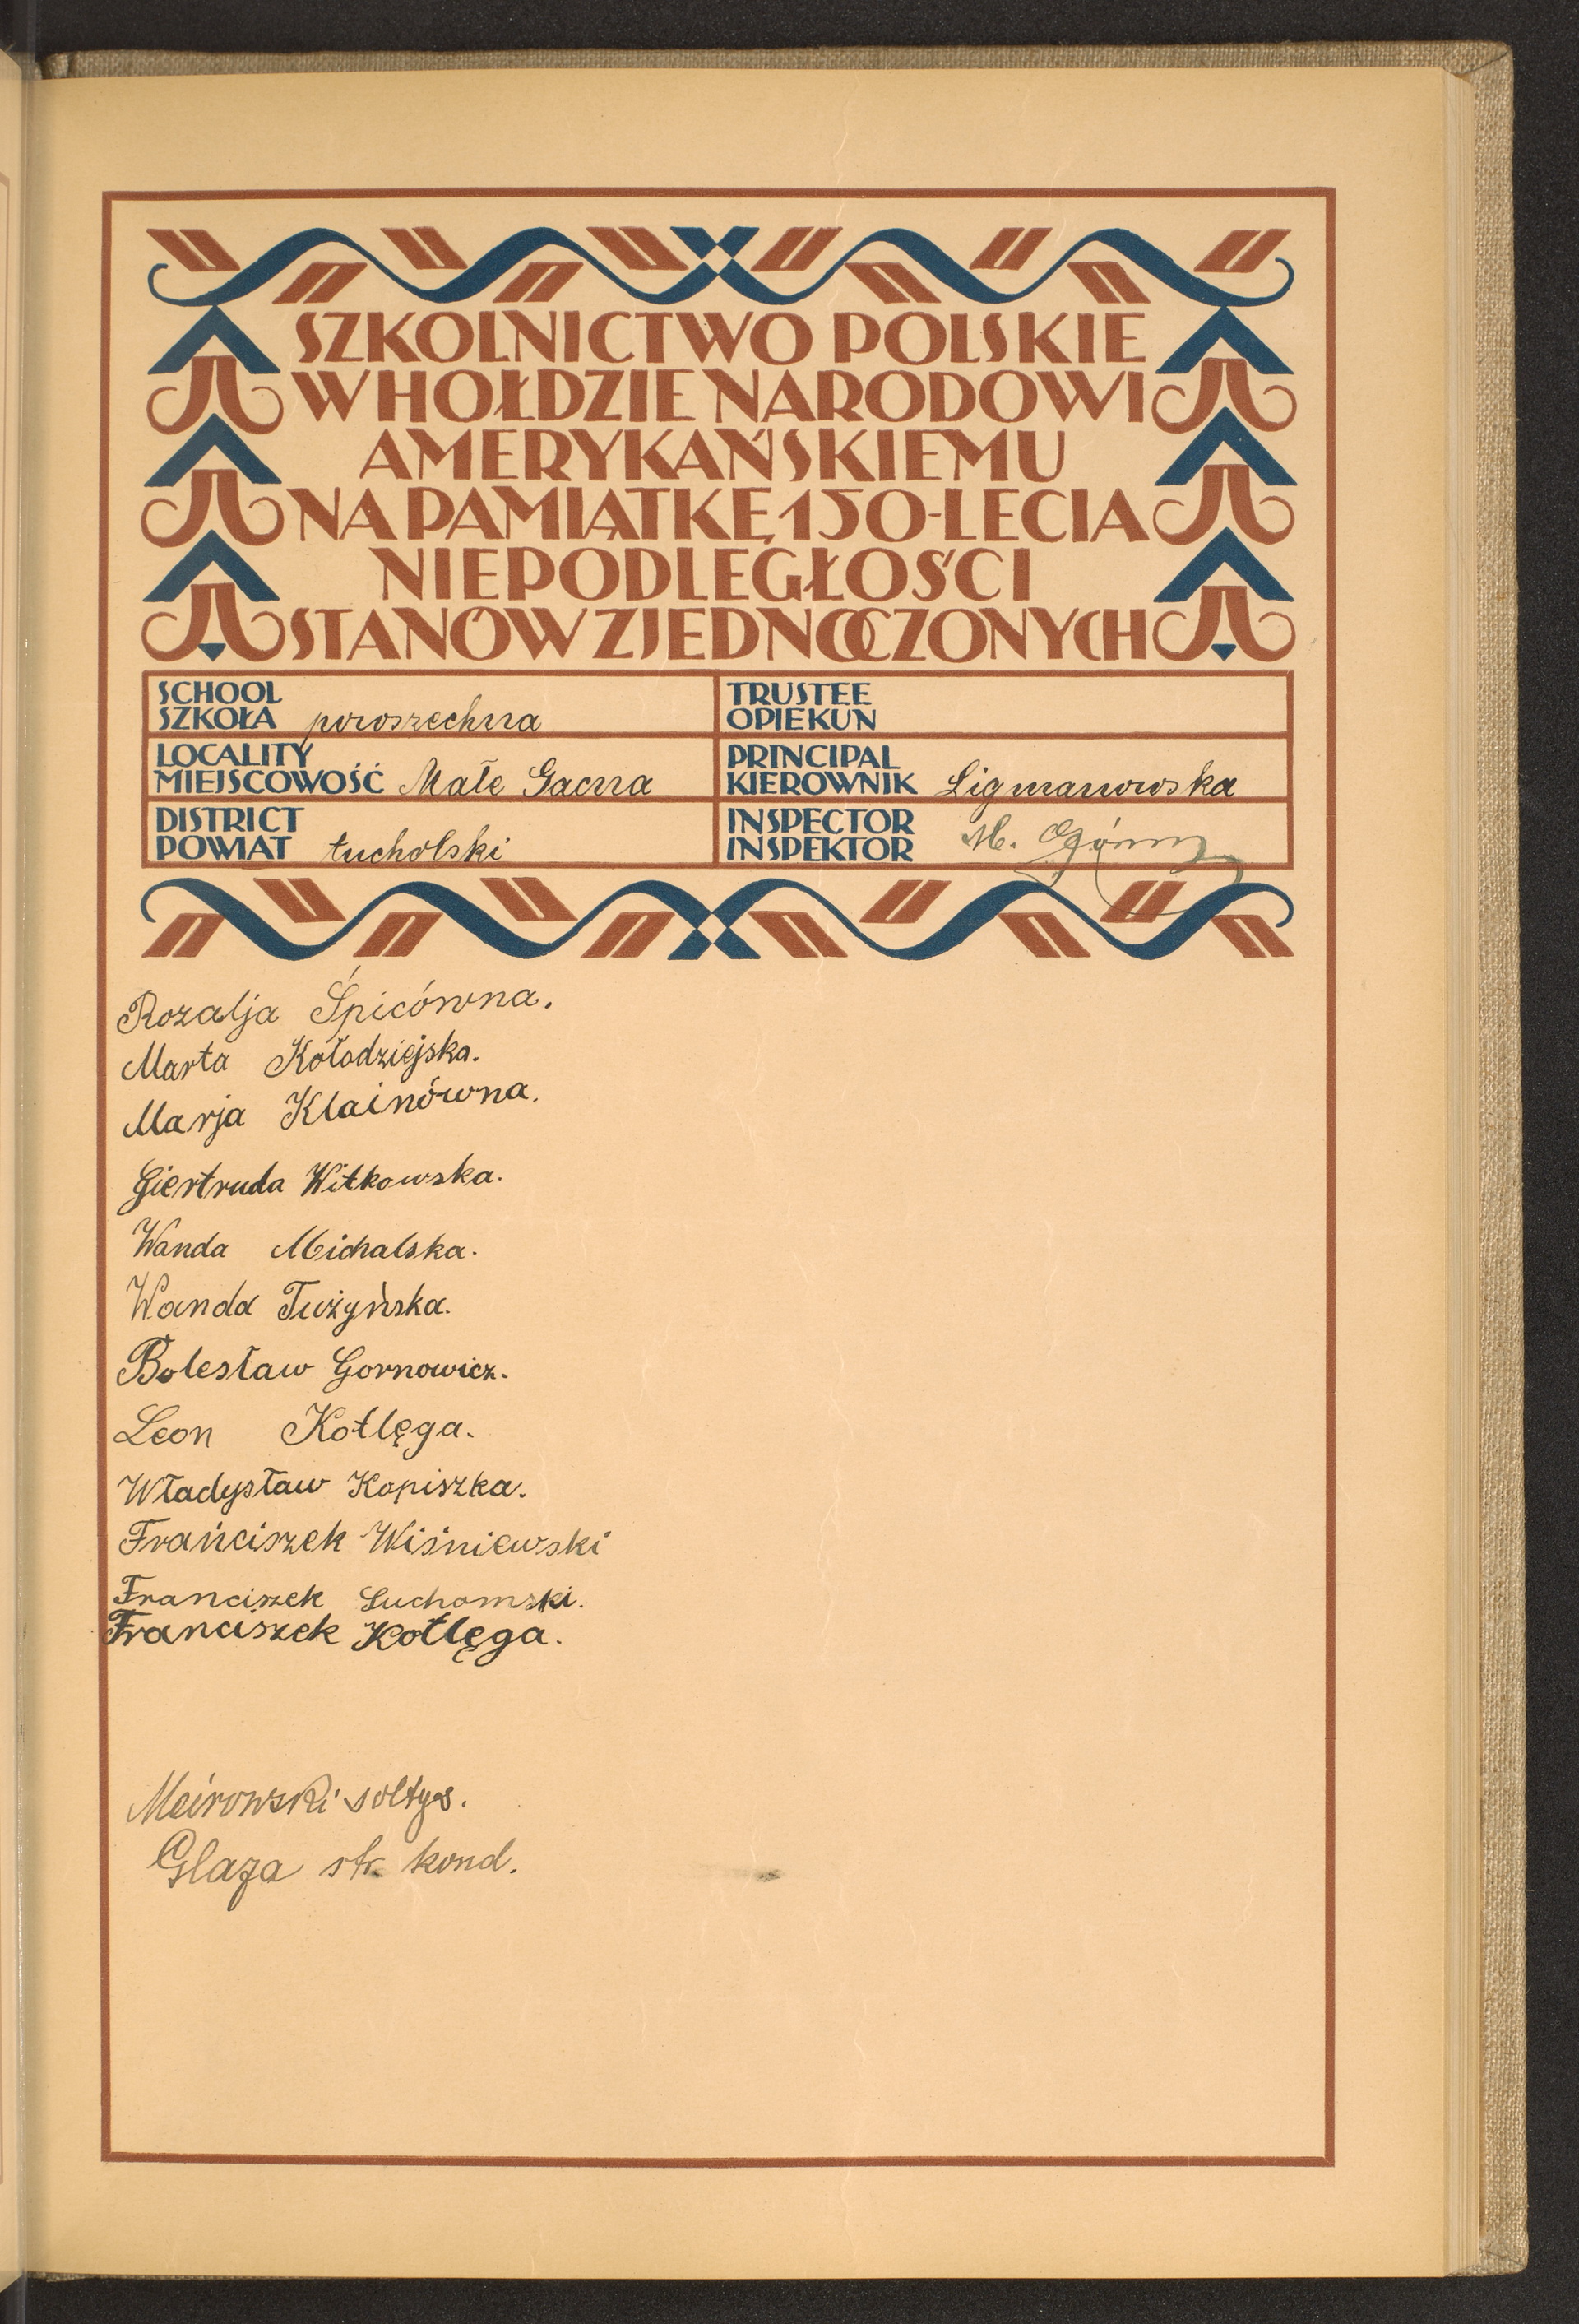 SZKOLNICTWO POLSKIE
W HOŁDZIE NARODOWI
AMERYKAŃSKIEMU
NA PAMIĄTKĘ 150-LECIA
NIEPODLEGŁOŚCI
STANÓW ZJEDNOCZONYCH
SCHOOL
SZKOŁA powszechna
TRUSTEE
OPIEKUN
LOCALITY
MIEJSCOWOŚĆ Małe Gacna
PRINCIPAL
KIEROWNIK Ligmanowska
DISTRICT
POWIAT tucholski
INSPECTOR
INSPEKTOR M.
Rozalja Śpicówna.
Marta Kołodziejska.
Marja Klainówna.
Giertruda Witkowska.
Wanda Michalska.
Wanda Tużyńska.
Bolesław Gornowicz.
Leon Kotlęga.
Władysław Kopiszka.
Frańciszek Wiśniewski
Franciszek Suchomski.
Franciszek Kotlęga.
Meirowski soltys.
Glaza str kond.